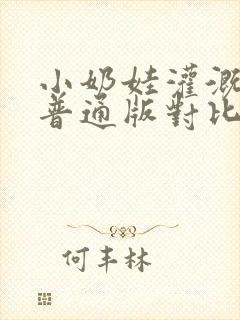 小奶娃灌溉
普通版對比
何丰林